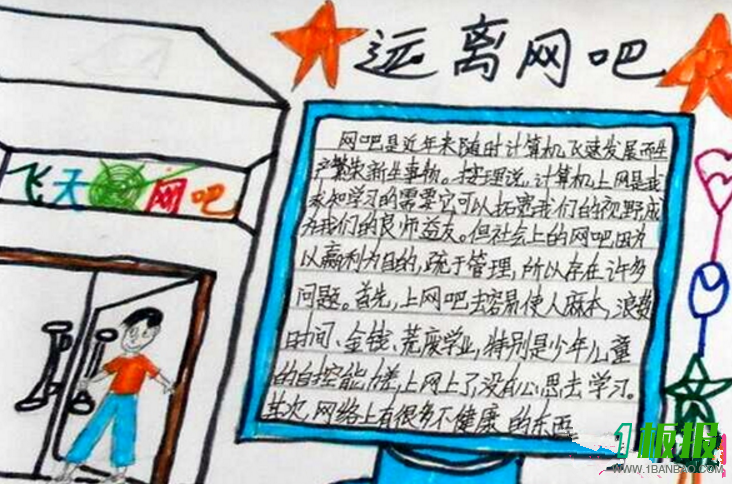 远离网吧
飞天网吧
网吧是近年来随时计算机飞速发展而生
产繁荣新生事物。按理说,计算机上网是我
求知学习的需要它可以拓宽我们的视野成
为我们的良师益友。但社会上的网吧因为
以赢利为目的,疏于管理,所以存在许多
问题。首先,上网吧去容易使人麻木,浪费
时间、金钱、荒废学业,特别是少年儿童
的自控能力差,上网上了没有心思去学习。
其次,网络上有很多不健康的东西
1板报
WWW.1BANBAO.COM